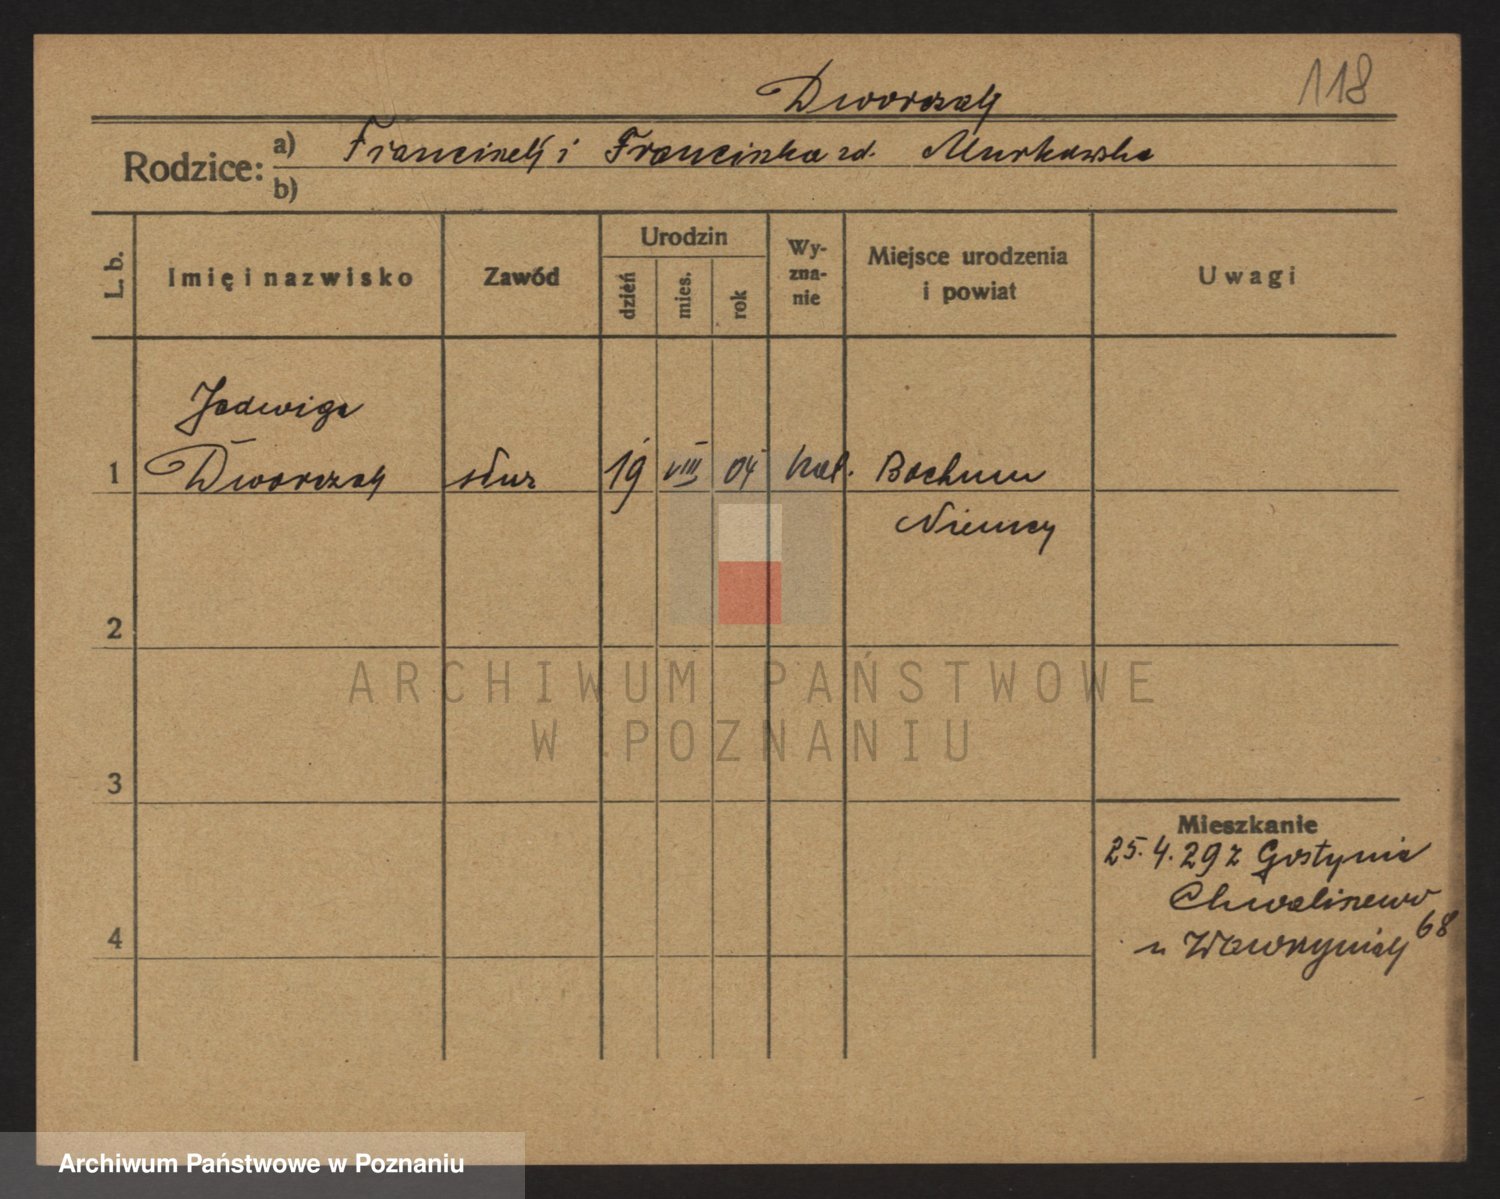 118
Dworczak
Rodzice: a) Franciszek i Franciszka zd. Murkowska
b)
L. b.
Imię i nazwisko
Zawód
Urodzin
dzień
mies.
rok
Wy-
zna-
nie
Miejsce urodzenia
i powiat
Uwagi
Jadwiga
1 Dworczak służ 19 VIII 04 kat. Bochum
Niemcy
2
3
4
Mieszkanie
25.4.29 z Gostynia
Chwaliszewo
68
u Wawrzyniak
ARCHIWUM PAŃSTWOWE
W POZNANIU
Archiwum Państwowe w Poznaniu